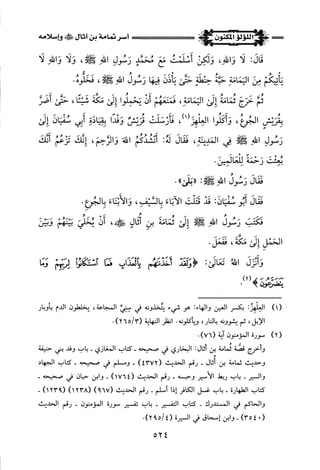 اللؤلؤ المكنون
أسر ثمامة بن أثال ﷺ وإسلامه
قَالَ: لَا وَاللهِ، وَلَكِنْ أَسْلَمْتُ مَعَ مُحَمَّدٍ رَسُولِ اللهِ ﷺ، وَلَا وَاللهِ لَا
يَأْتِيكُمْ مِنَ الْيَمَامَةِ حَبَّةُ حِنْطَةٍ حَتَّى يَأْذَنَ فِيهَا رَسُولُ اللهِ ﷺ، فَخَلَّوْهُ.
ثُمَّ خَرَجَ ثُمَامَةُ إِلَى الْيَمَامَةِ، فَمَنَعَهُمْ أَنْ يَحْمِلُوا إِلَى مَكَّةَ شَيْئًا، حَتَّى أَضَرَّ
بِقُرَيْشٍ الْجُوعُ، وَأَكَلُوا الْعِلْهِزَ(١)، فَأَرْسَلَتْ قُرَيْشٌ وَفْدًا بِقِيَادَةِ أَبِي سُفْيَانَ إِلَى
رَسُولِ اللهِ ﷺ فِي الْمَدِينَةِ، فَقَالَ لَهُ: أَنْشُدُكُمُ اللهَ وَالرَّحِمَ، إِنَّكَ تَزْعُمُ أَنَّكَ
بُعِثْتَ رَحْمَةً لِلْعَالَمِينَ.
فَقَالَ رَسُولُ اللهِ ﷺ: «بَلَى».
فَقَالَ أَبُو سُفْيَانَ: قَدْ قَتَلْتَ الْآبَاءَ بِالسَّيْفِ، وَالْأَبْنَاءَ بِالْجُوعِ.
فَكَتَبَ رَسُولُ اللهِ ﷺ إِلَى ثُمَامَةَ بنِ أُثَالٍ ﷺ، أَنْ يُخَلِّيَ بَيْنَهُمْ وَبَيْنَ
الْحَمْلِ إِلَى مَكَّةَ، فَفَعَلَ.
وَأَنْزَلَ اللهُ تَعَالَى: ﴿وَلَقَدْ أَخَذْنَاهُم بِالْعَذَابِ فَمَا اسْتَكَانُوا لِرَبِّهِمْ وَمَا
يَتَضَرَّعُونَ﴾(٢).
(١) العِلْهِزُ: بكسر العين والهاء: هو شيء يتخذونه في سِنِيِّ المجاعة، يخلطون الدم بأوبار
الإبل، ثم يشوونه بالنار، ويأكلونه. انظر النهاية (٢٦٥/٣).
(٢) سورة المؤمنون آية (٧٦).
وأخرج قصة ثمامة بن أثال: البخاري في صحيحه - كتاب المغازي - باب وفد بني حنيفة
وحديث ثمامة بن أثال - رقم الحديث (٤٣٧٢) - ومسلم في صحيحه - كتاب الجهاد
والسير - باب ربط الأسير وحبسه - رقم الحديث (١٧٦٤) - وابن حبان في صحيحه -
كتاب الطهارة - باب غسل الكافر إذا أسلم - رقم الحديث (٩٦٧) (١٢٣٨) (١٢٣٩) -
والحاكم في المستدرك - كتاب التفسير - باب تفسير سورة المؤمنون - رقم الحديث
(٣٥٤٠) - وابن إسحاق في السيرة (٢٩٥/٤).
٥٢٤